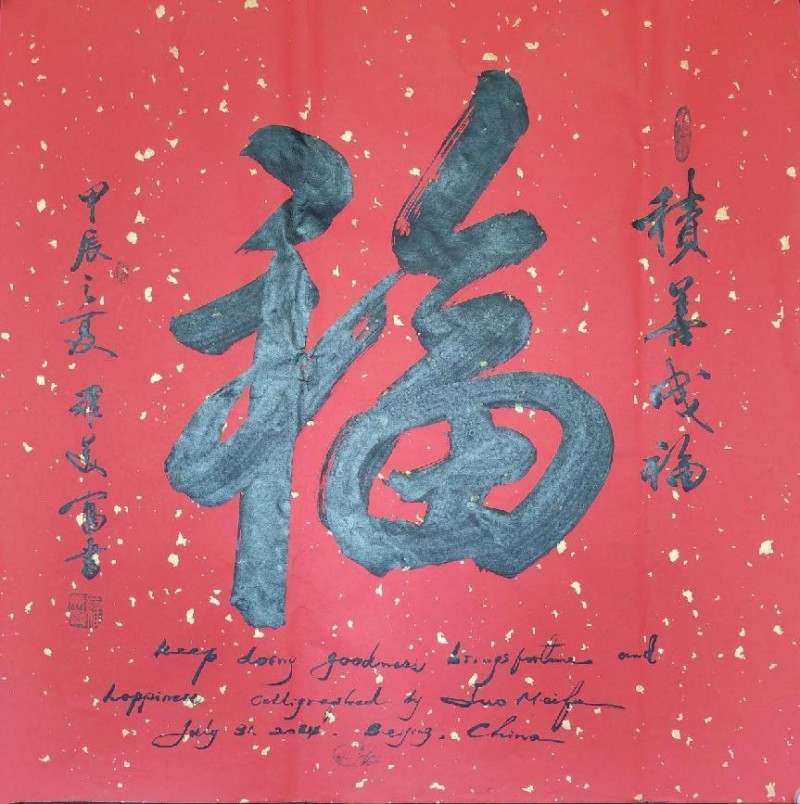 福
積善成福
甲辰之夏 羅美富書
keep doing goodness brings fortune and
happiness calligraphed by Luo Meifu
July 31. 2024. Beijing. China